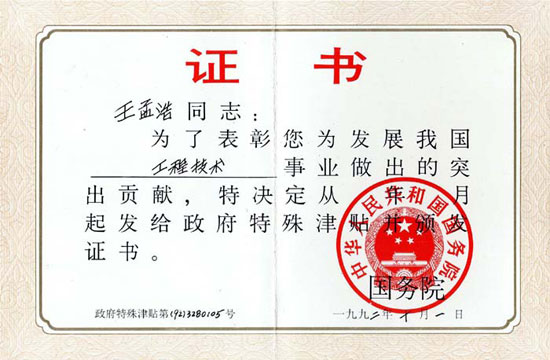 证书
王孟浩同志：
为了表彰您为发展我国
工程技术事业做出的突
出贡献，特决定从 年 月
起发给政府特殊津贴并颁发
证书。
中华人民共和国国务院
国务院
政府特殊津贴第(92)3280105号
一九九二年十月一日